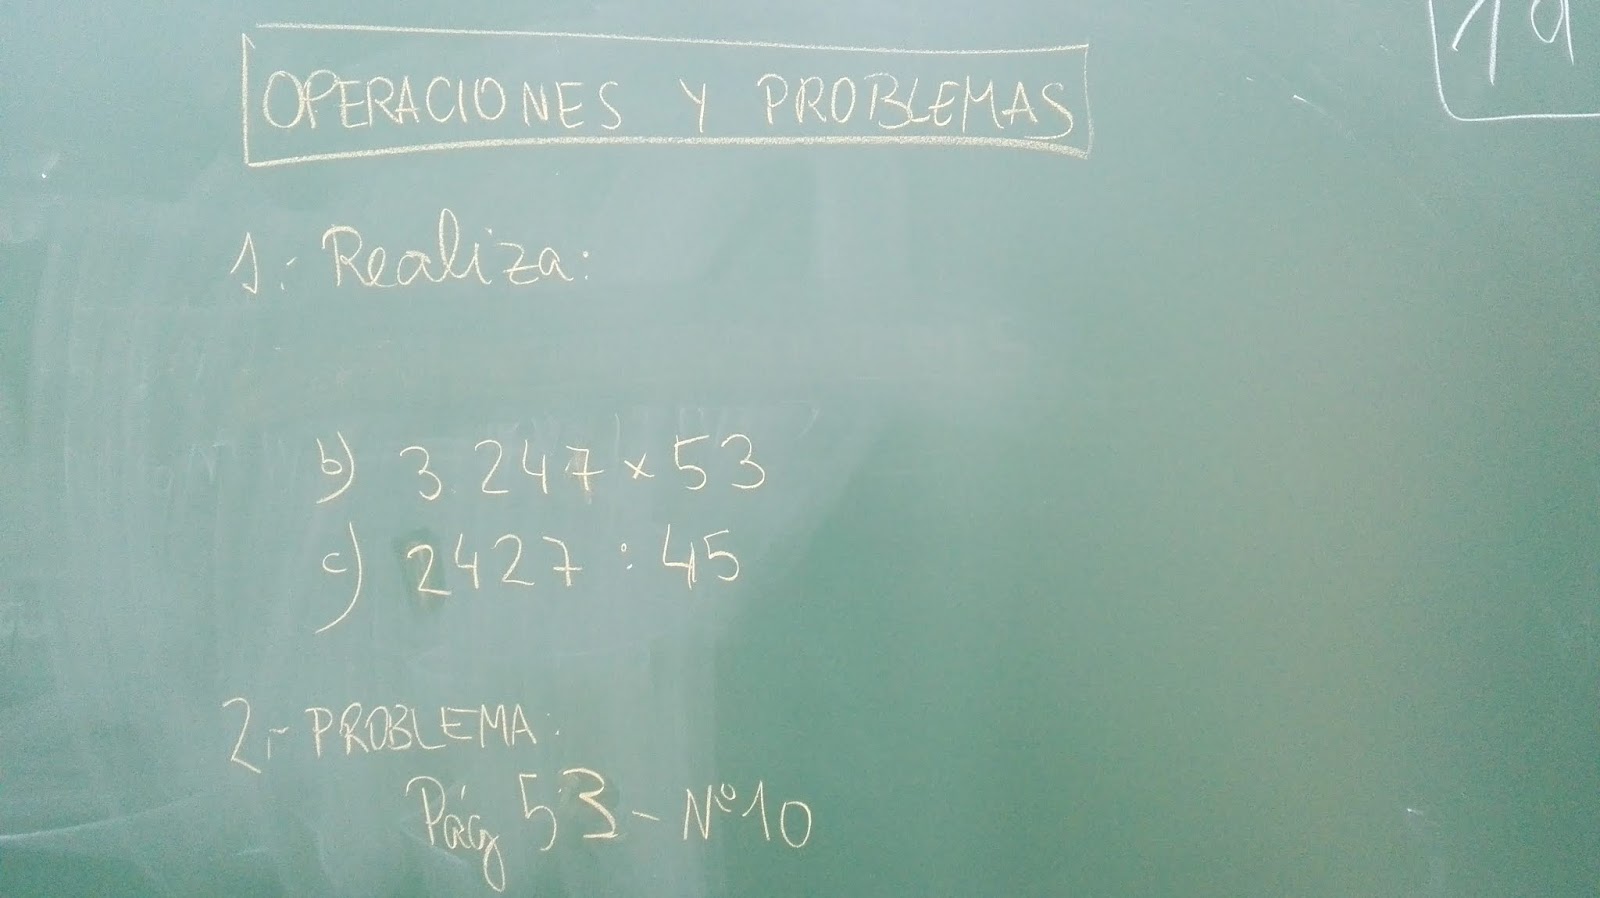 OPERACIONES Y PROBLEMAS
1.- Realiza:
b) 3.247 x 53
c) 2427 : 45
2.- PROBLEMA:
Pág 53 - Nº 10